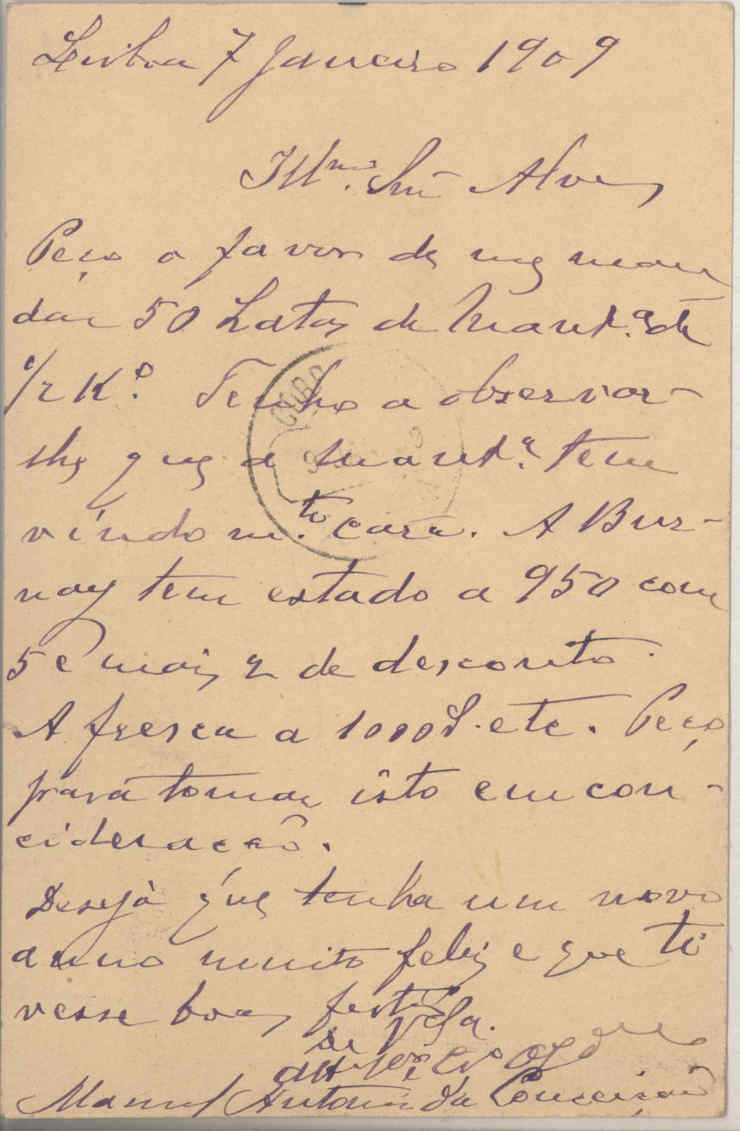 Lisboa 7 Janeiro 1909
Illmo. Snr Alves
Peço o favor de me man
dar 50 Latas de Mantª de
1/2 Kº. Tenho a observar-
lhe que a mantª tem
vindo mto. cara. A Bur-
nay tem estado a 950 com
5 e mais 2 de desconto.
A fresca a 1000 etc. Peço
para tomar isto em con-
cideração.
CUBA
Desejo que tenha um novo
anno muito feliz e que ti
vesse boas festas.
De Vsa.
Manuel Antonio da Conceição